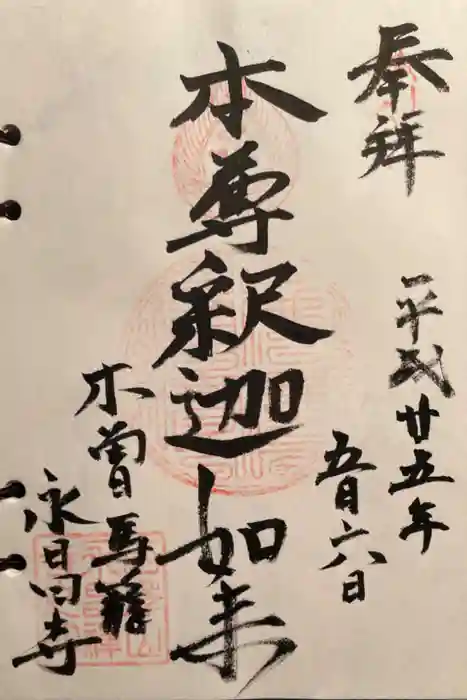 奉拝
平成廿五年
五月六日
本尊釈迦如来
木曽馬籠
永昌寺